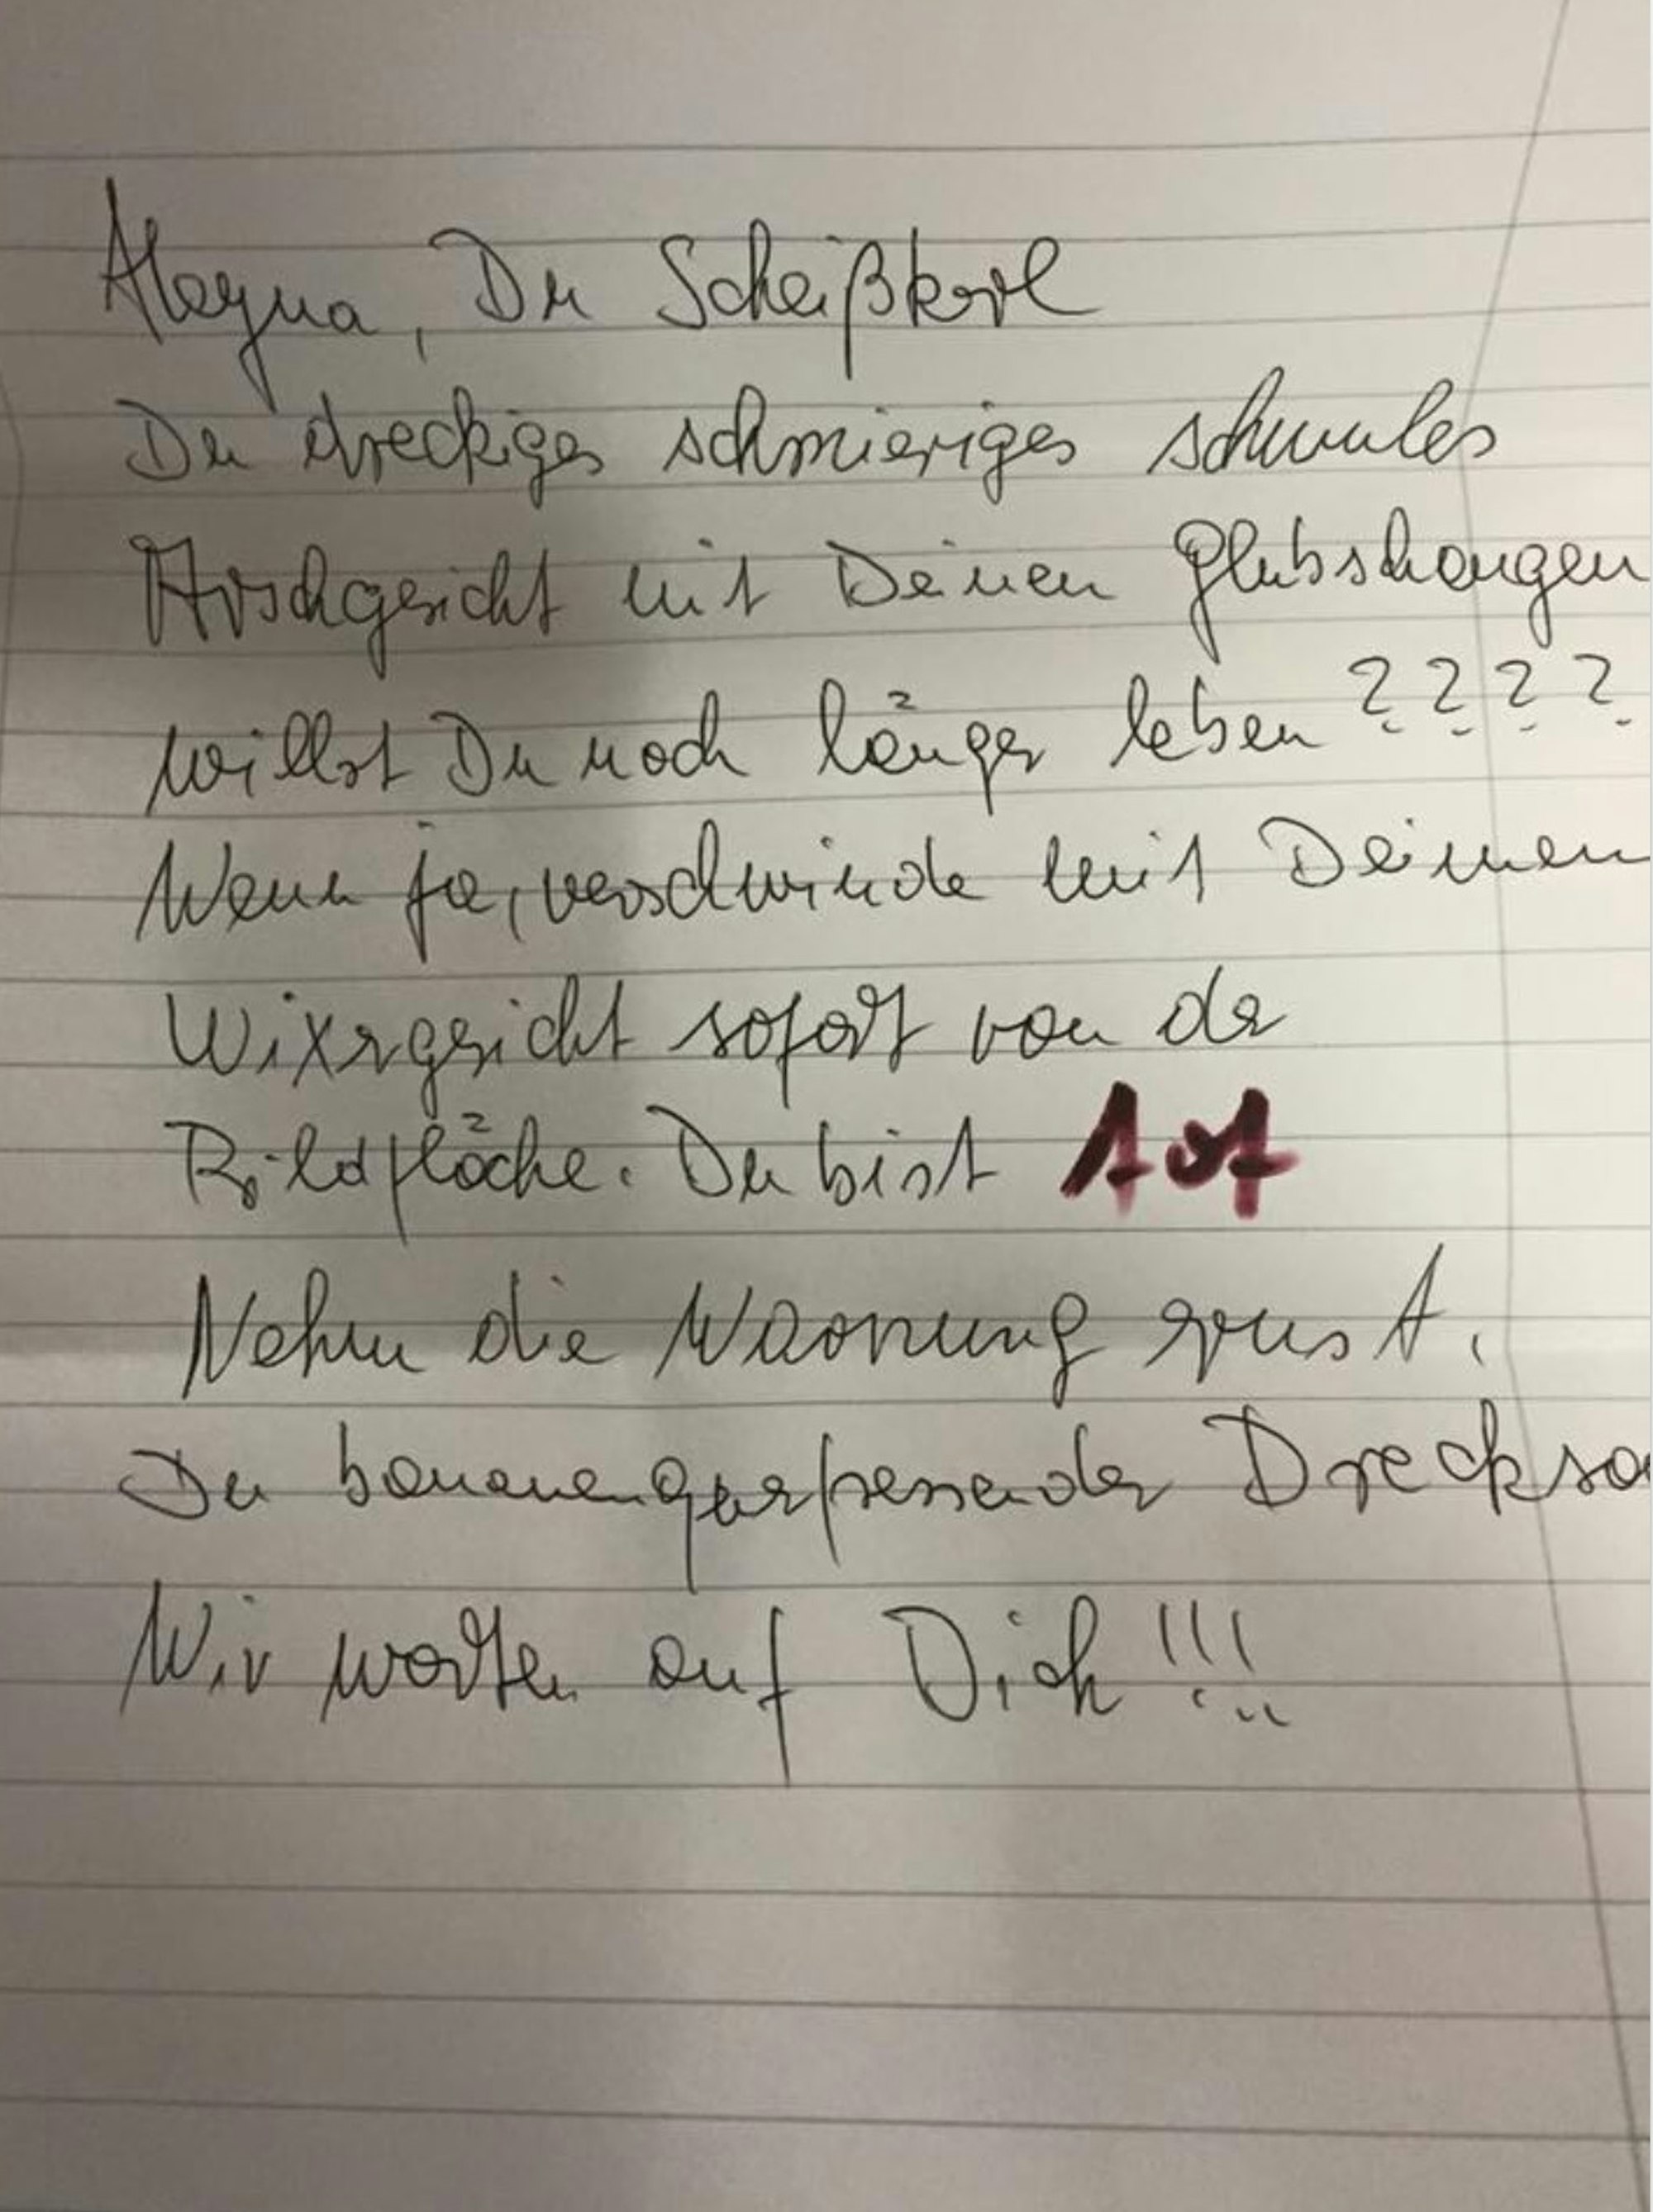 Aleyna, Du Scheißkerl
Du dreckiges schmieriges schwules
Arschgesicht mit Deinen Glubschaugen
willst Du noch länger leben ????
Wenn ja, verschwinde mit Deinen
Wixergesicht sofort von der
Bildfläche. Du bist tot
Nehm die Warnung ernst.
Du bananenquerfressender Drecksa
Wir warten auf Dich !!!